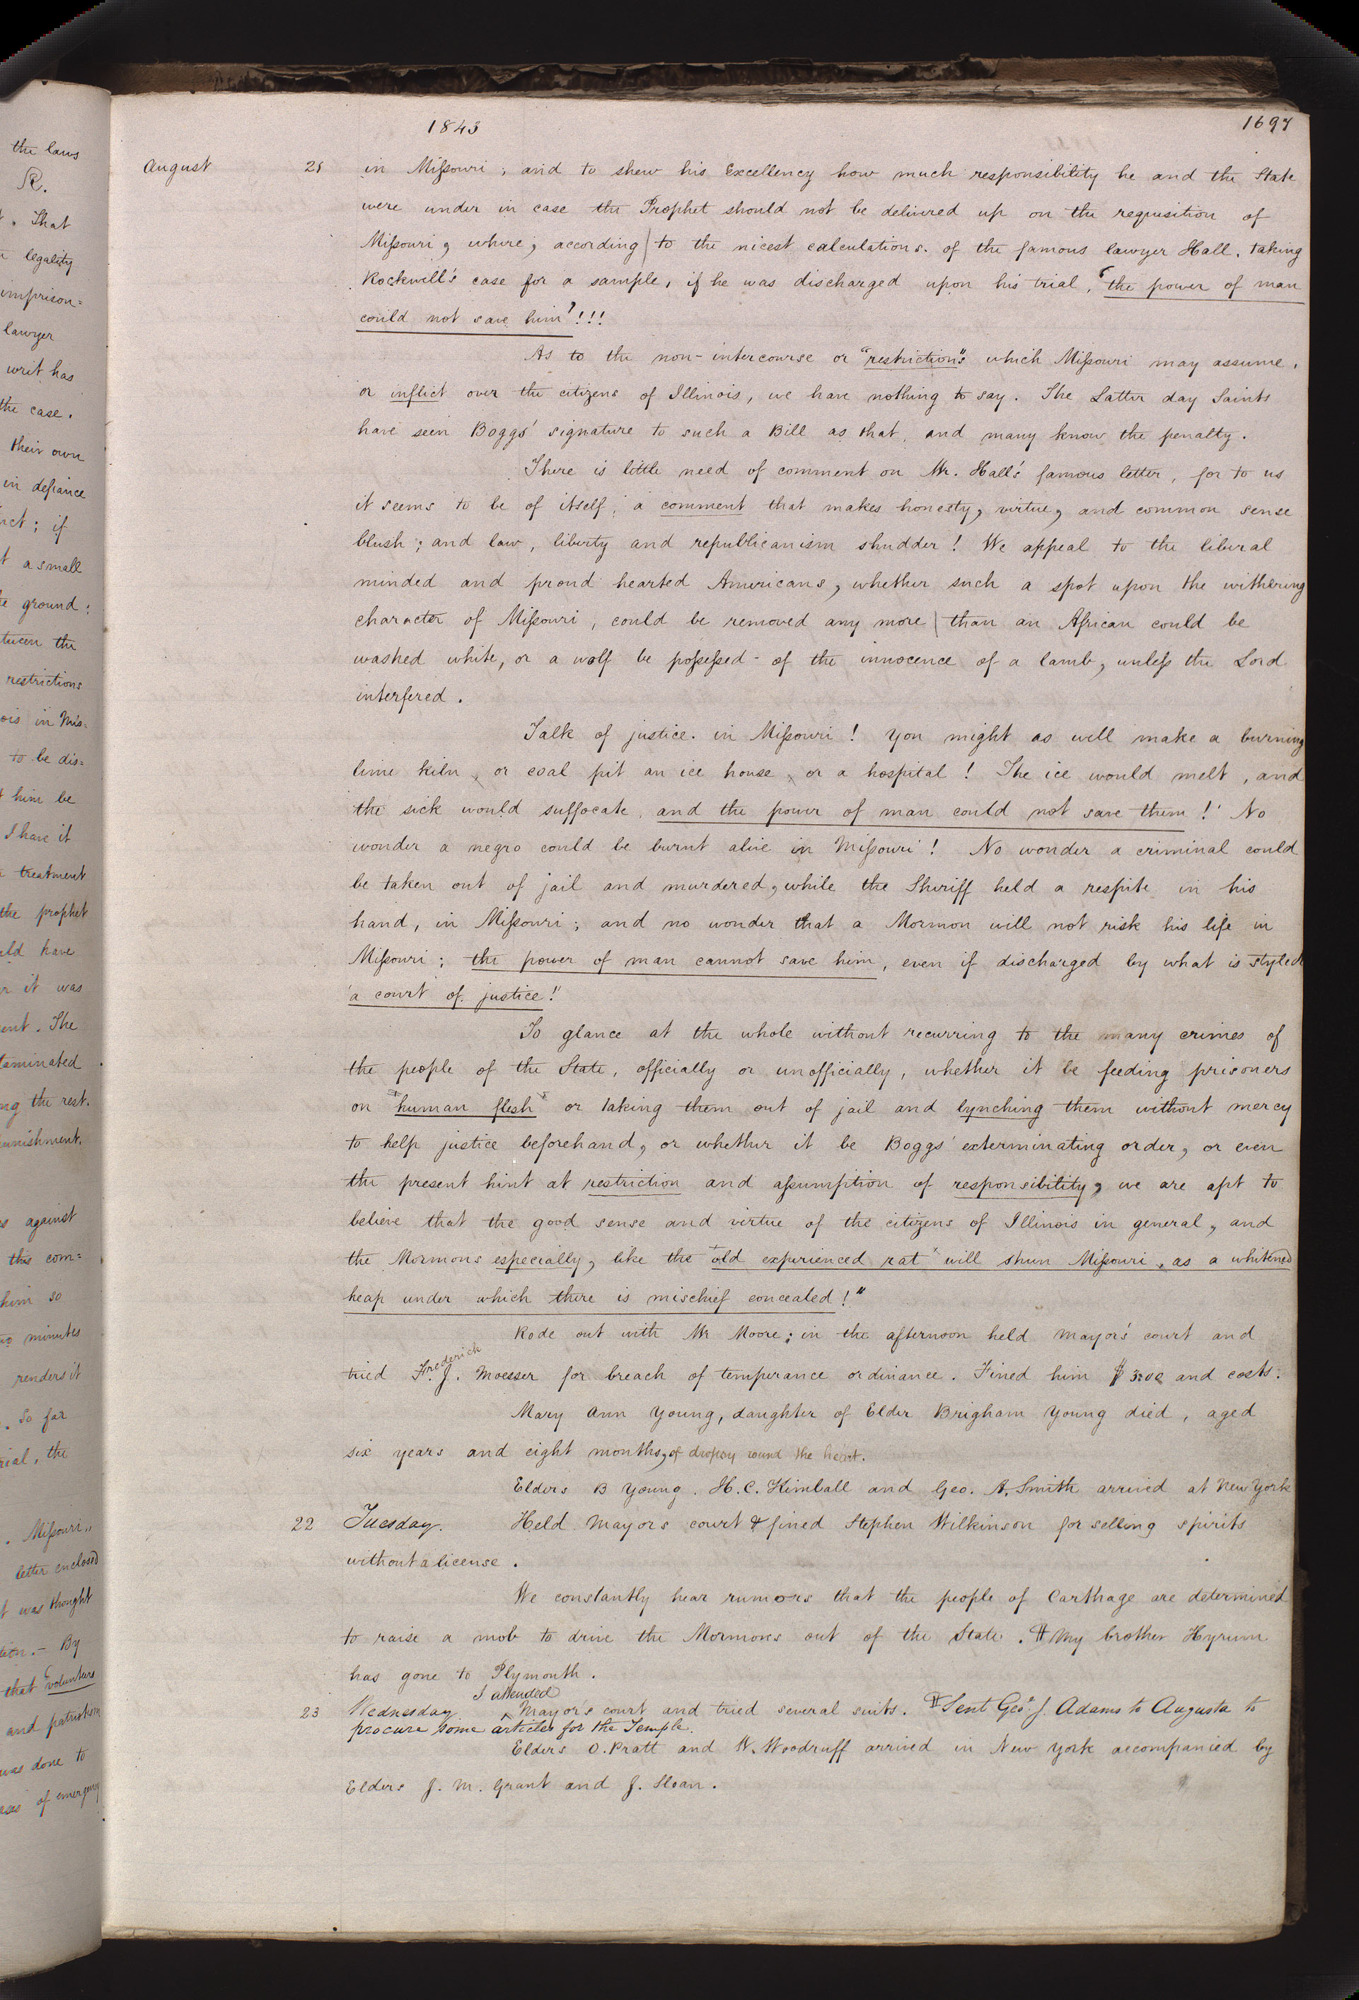 1843
1697
August 21 in Missouri, and to shew his Excellency how much responsibility he and the State
were under in case the Prophet should not be delivered up on the requisition of
Missouri, where, according to the nicest calculations. of the famous lawyer Hall. taking
Rockwell's case for a sample, if he was discharged upon his trial, "the power of man
could not save him"!!!
As to the non-intercourse or "restrictions" which Missouri may assume,
or inflict over the citizens of Illinois, we have nothing to say. The Latter day Saints
have seen Boggs' signature to such a Bill as that, and many know the penalty.
There is little need of comment on Mr. Hall's famous letter, for to us
it seems to be of itself, a comment that makes honesty, virtue, and common sense
blush; and law, liberty and republicanism shudder! We appeal to the liberal
minded and proud hearted Americans, whether such a spot upon the withering
character of Missouri, could be removed any more than an African could be
washed white, or a wolf be possessed of the innocence of a lamb, unless the Lord
interfered.
Talk of justice in Missouri! you might as well make a burning
lime kiln, or coal pit an ice house, or a hospital! The ice would melt, and
the sick would suffocate, and the power of man could not save them! No
wonder a negro could be burnt alive in Missouri! No wonder a criminal could
be taken out of jail and murdered, while the Sheriff held a respite in his
hand, in Missouri; and no wonder that a Mormon will not risk his life in
Missouri; the power of man cannot save him, even if discharged by what is styled
'a court of justice!'
To glance at the whole without recurring to the many crimes of
the people of the State, officially or unofficially, whether it be feeding prisoners
on "human flesh" or taking them out of jail and lynching them without mercy
to help justice beforehand, or whether it be Boggs' exterminating order, or even
the present hint at restriction and assumption of responsibility, we are apt to
believe that the good sense and virtue of the citizens of Illinois in general, and
the Mormons especially, like the "old experienced rat" will shun Missouri, as a whitened
heap under which there is mischief concealed!"
Rode out with Mr Moore; in the afternoon held mayor's court and
Frederick
tried F. J. Moesser for breach of temperance ordinance. Fined him $ and costs.
Mary Ann Young, daughter of Elder Brigham Young died, aged
six years and eight months, of dropsy round the heart.
Elders B Young, H. C. Kimball and Geo. A. Smith arrived at New York
22 Tuesday. Held Mayors court & fined Stephen Wilkinson for selling spirits
without a license.
We constantly hear rumors that the people of Carthage are determined
to raise a mob to drive the Mormons out of the State. # My brother Hyrum
has gone to Plymouth.
I attended
23 Wednesday ^ Mayor's court and tried several suits. # Sent Geo. J. Adams to Augusta to
procure some articles for the Temple.
Elders O. Pratt and W. Woodruff arrived in New York accompanied by
Elders J. M. Grant and J. Sloan.
the laws
R.
. That
legality
imprison=
lawyer
writ has
the case.
their own
in defiance
; if
a small
ground;
the
restrictions
in Mis=
to be dis=
him be
I have it
treatment
the prophet
have
it was
. The
the rest.
punishment.
against
this com=
him so
minutes
renders it
. So far
, the
. Missouri,,
letter enclosed
was thought
. - By
that "volunteers
and patriotism
was done to
of emergency